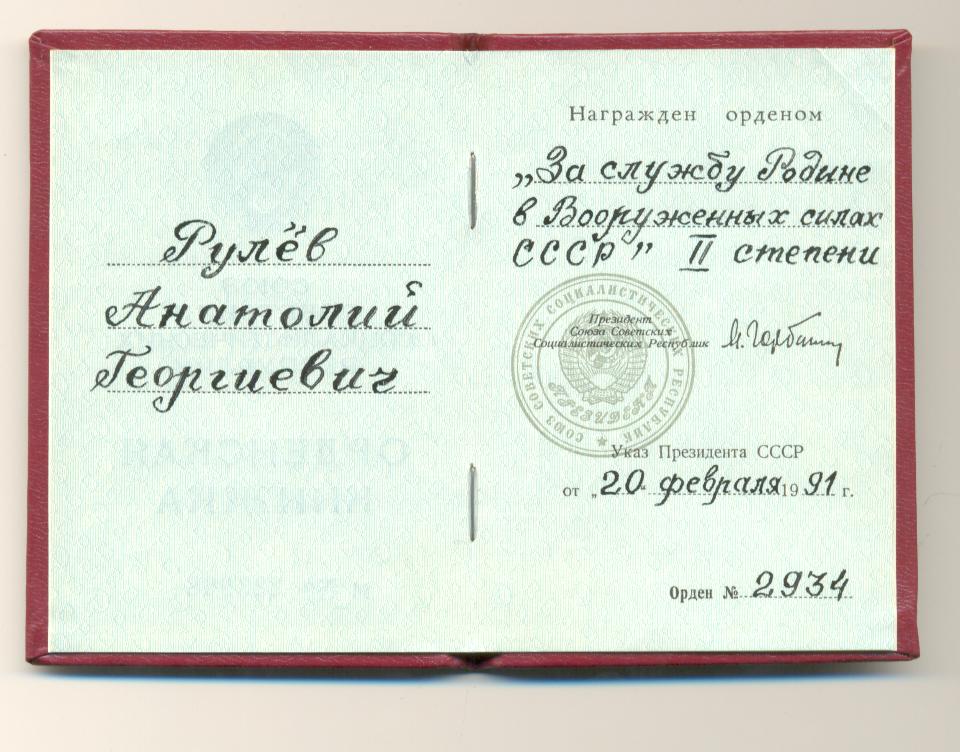 Рулёв
Анатолий
Георгиевич
Награжден орденом
„За службу Родине
в Вооруженных силах
СССР” II степени
СОЮЗ СОВЕТСКИХ СОЦИАЛИСТИЧЕСКИХ РЕСПУБЛИК
ПРЕЗИДЕНТ
Президент
Союза Советских
Социалистических Республик
М. Горбачев
Указ Президента СССР
от „20“ февраля 1991 г.
Орден № 2934